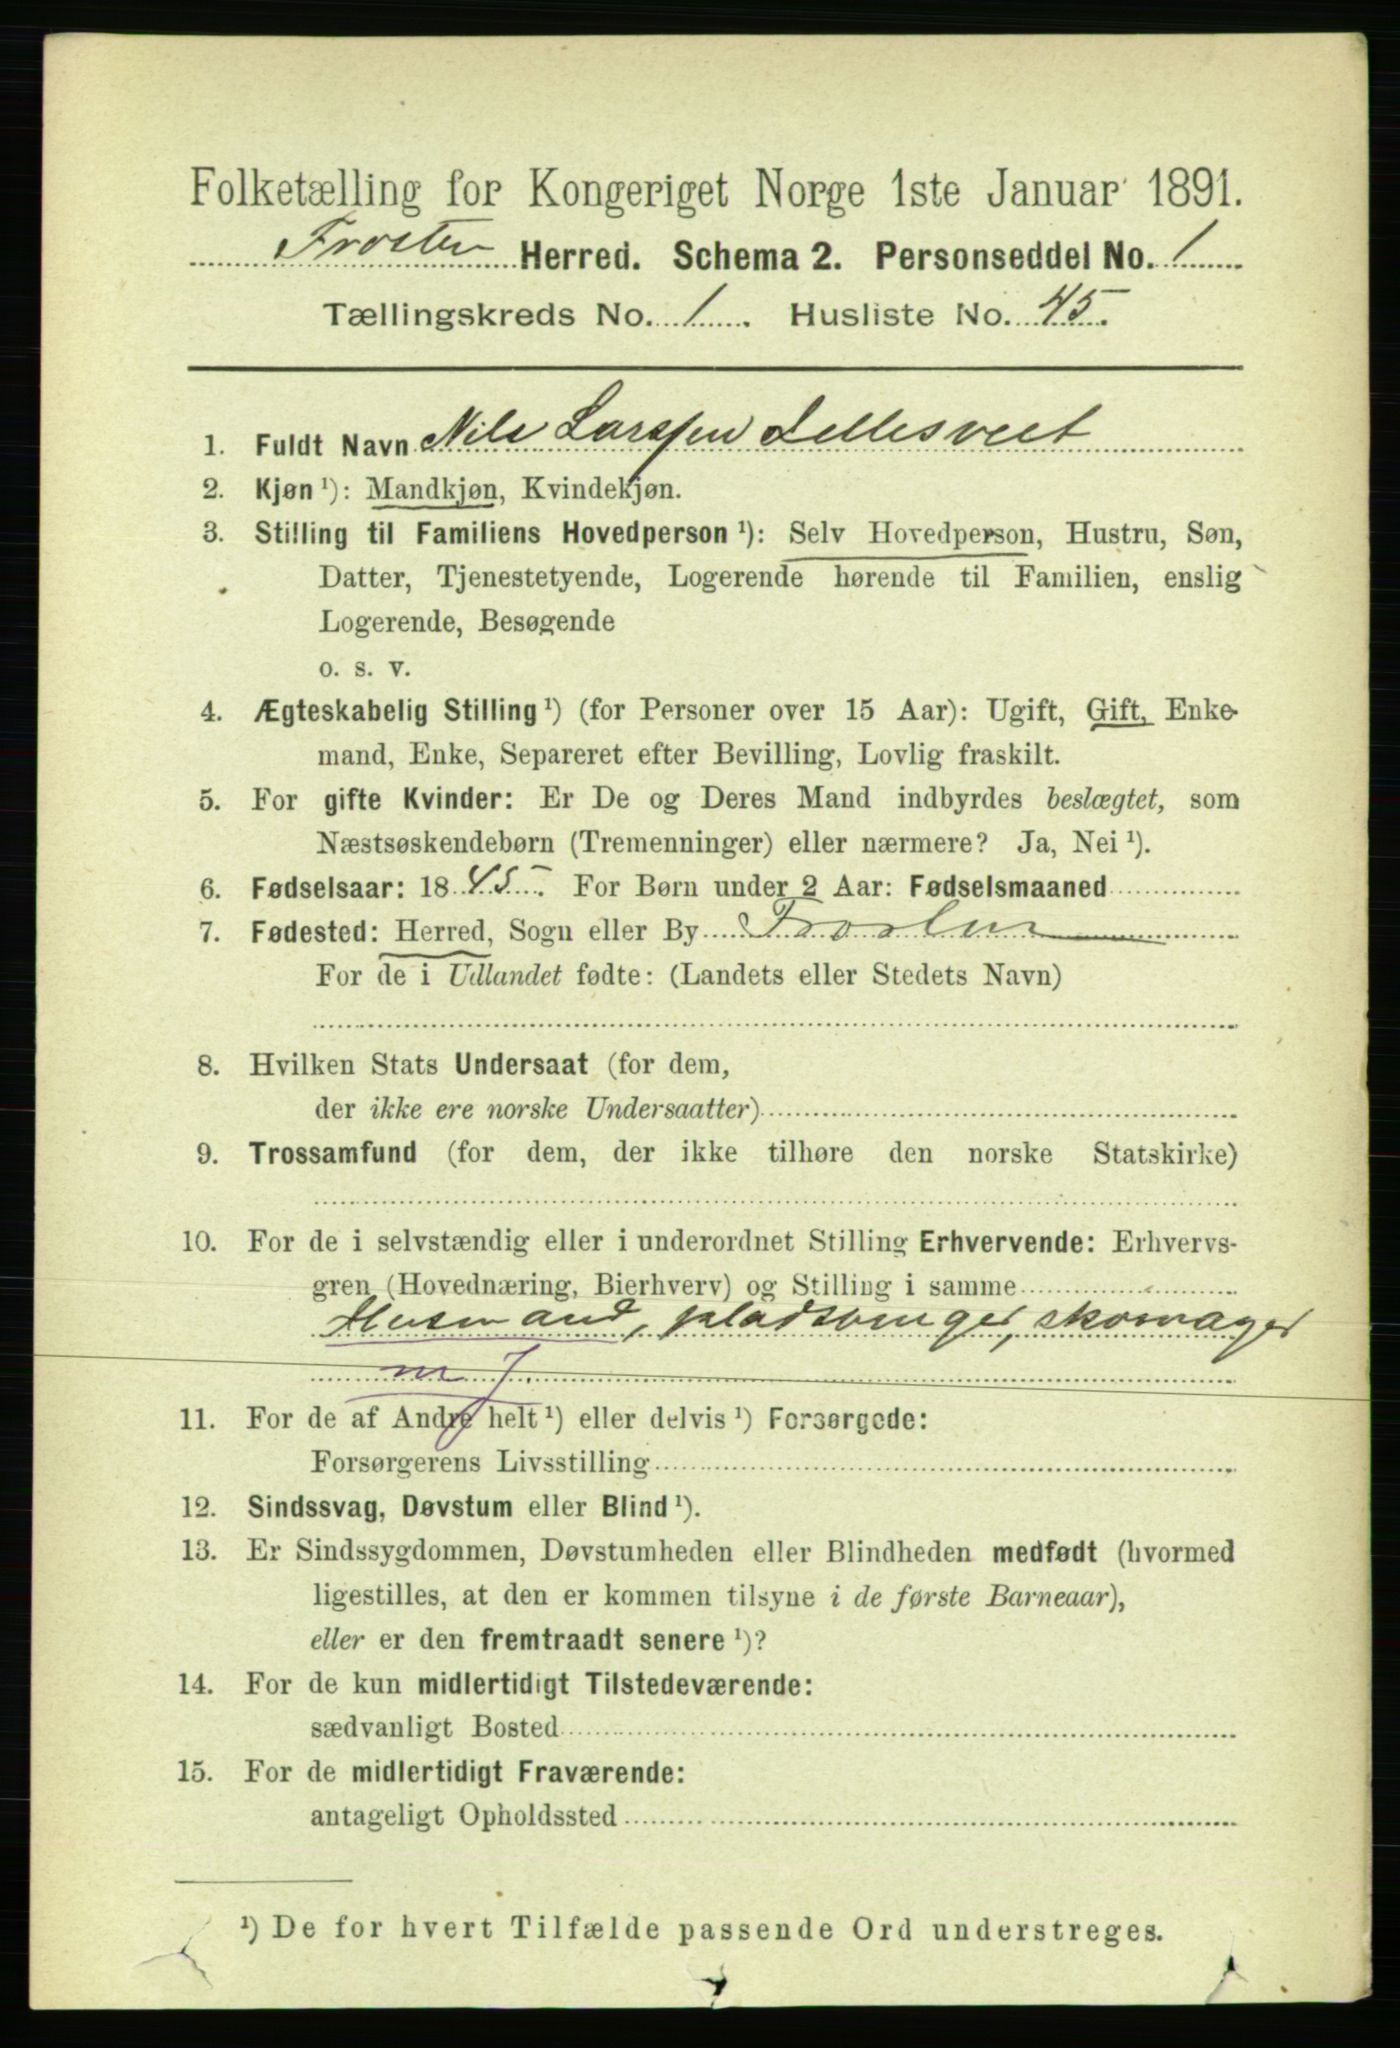 Folketælling for Kongeriget Norge 1ste Januar 1891.
Frosten Herred. Schema 2. Personseddel No. 1
Tællingskreds No. 1. Husliste No. 45.
1. Fuldt Navn Nils Larssen Lillesveet
2. Kjøn ¹): Mandkjøn, Kvindekjøn.
3. Stilling til Familiens Hovedperson ¹): Selv Hovedperson, Hustru, Søn,
Datter, Tjenestetyende, Logerende hørende til Familien, enslig
Logerende, Besøgende
o. s. v.
4. Ægteskabelig Stilling ¹) (for Personer over 15 Aar): Ugift, Gift, Enke-
mand, Enke, Separeret efter Bevilling, Lovlig fraskilt.
5. For gifte Kvinder: Er De og Deres Mand indbyrdes beslægtet, som
Næstsøskendebørn (Tremenninger) eller nærmere? Ja, Nei ¹).
6. Fødselsaar: 1845. For Børn under 2 Aar: Fødselsmaaned
7. Fødested: Herred, Sogn eller By Frosten
For de i Udlandet fødte: (Landets eller Stedets Navn)
8. Hvilken Stats Undersaat (for dem,
der ikke ere norske Undersaatter)
9. Trossamfund (for dem, der ikke tilhøre den norske Statskirke)
10. For de i selvstændig eller i underordnet Stilling Erhvervende: Erhvervs-
gren (Hovednæring, Bierhverv) og Stilling i samme
Husmand, pladsbruger, skomager
m J
11. For de af Andre helt ¹) eller delvis ¹) Forsørgede:
Forsørgerens Livsstilling
12. Sindssvag, Døvstum eller Blind ¹).
13. Er Sindssygdommen, Døvstumheden eller Blindheden medfødt (hvormed
ligestilles, at den er kommen tilsyne i de første Barneaar),
eller er den fremtraadt senere ¹)?
14. For de kun midlertidigt Tilstedeværende:
sædvanligt Bosted
15. For de midlertidigt Fraværende:
antageligt Opholdssted
¹) De for hvert Tilfælde passende Ord understreges.